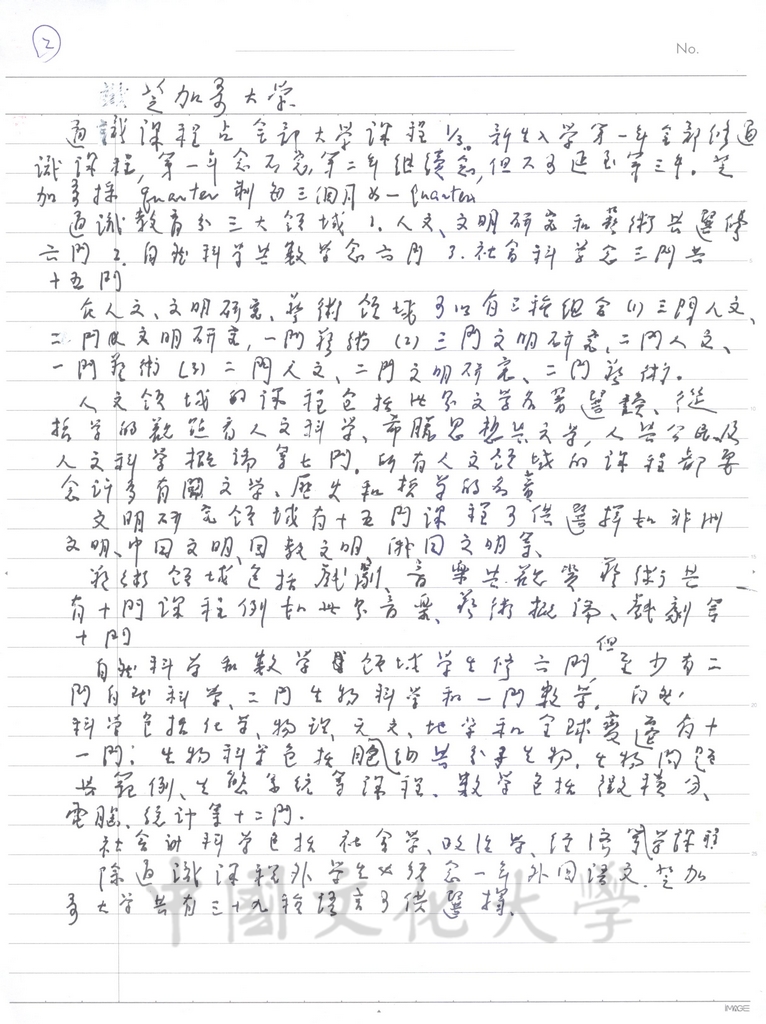 2
No.
芝加哥大学
通識課程占全部大学課程1/3。新生入学第一年全部修通
識課程,第一年念不完,第二年継續念,但不可延至第三年。芝
加哥採 quarter 制每三個月为一 quarter
通識教育分三大領域 1. 人文、文明研究和藝術共選修
六門 2. 自然科学共数学念六門 3. 社會科学念三門共
十五門
在人文、文明研究、藝術領域可以有三種組合 (1) 三門人文、
二門文明研究,一門藝術 (2) 三門文明研究、二門人文、
一門藝術 (3) 二門人文、二門文明研究、二門藝術。
人文領域的課程包括世界文学名著選讀、從
哲学的觀點看人文科学、希臘思想与文学,人与公民及
人文科学概論等七門。所有人文領域的課程都要
念許多有関文学、歷史和哲学的名著
文明研究領域有十五門課程可供選擇如非洲
文明、中国文明、回教文明、俄国文明等、
藝術領域包括戲劇、音樂与欣賞藝術共
有十門課程例如世界音樂、藝術概論、戲劇等
十門
自然科学和数学領域学生修六門,但至少有二
門自然科学、二門生物科学和一門数学。自然
科学包括化学、物理、天文、地学和全球變遷有十
一門;生物科学包括細胞与分子生物,生物問題
与範例、生態系統等課程、数学包括微積分、
電腦、統計等十二門。
社会科学包括社会学、政治学、経済学課程
除通識課程外学生必須念一年外国語文.芝加
哥大学共有三十九種語言可供選擇、
中國文化大學
IMAGE